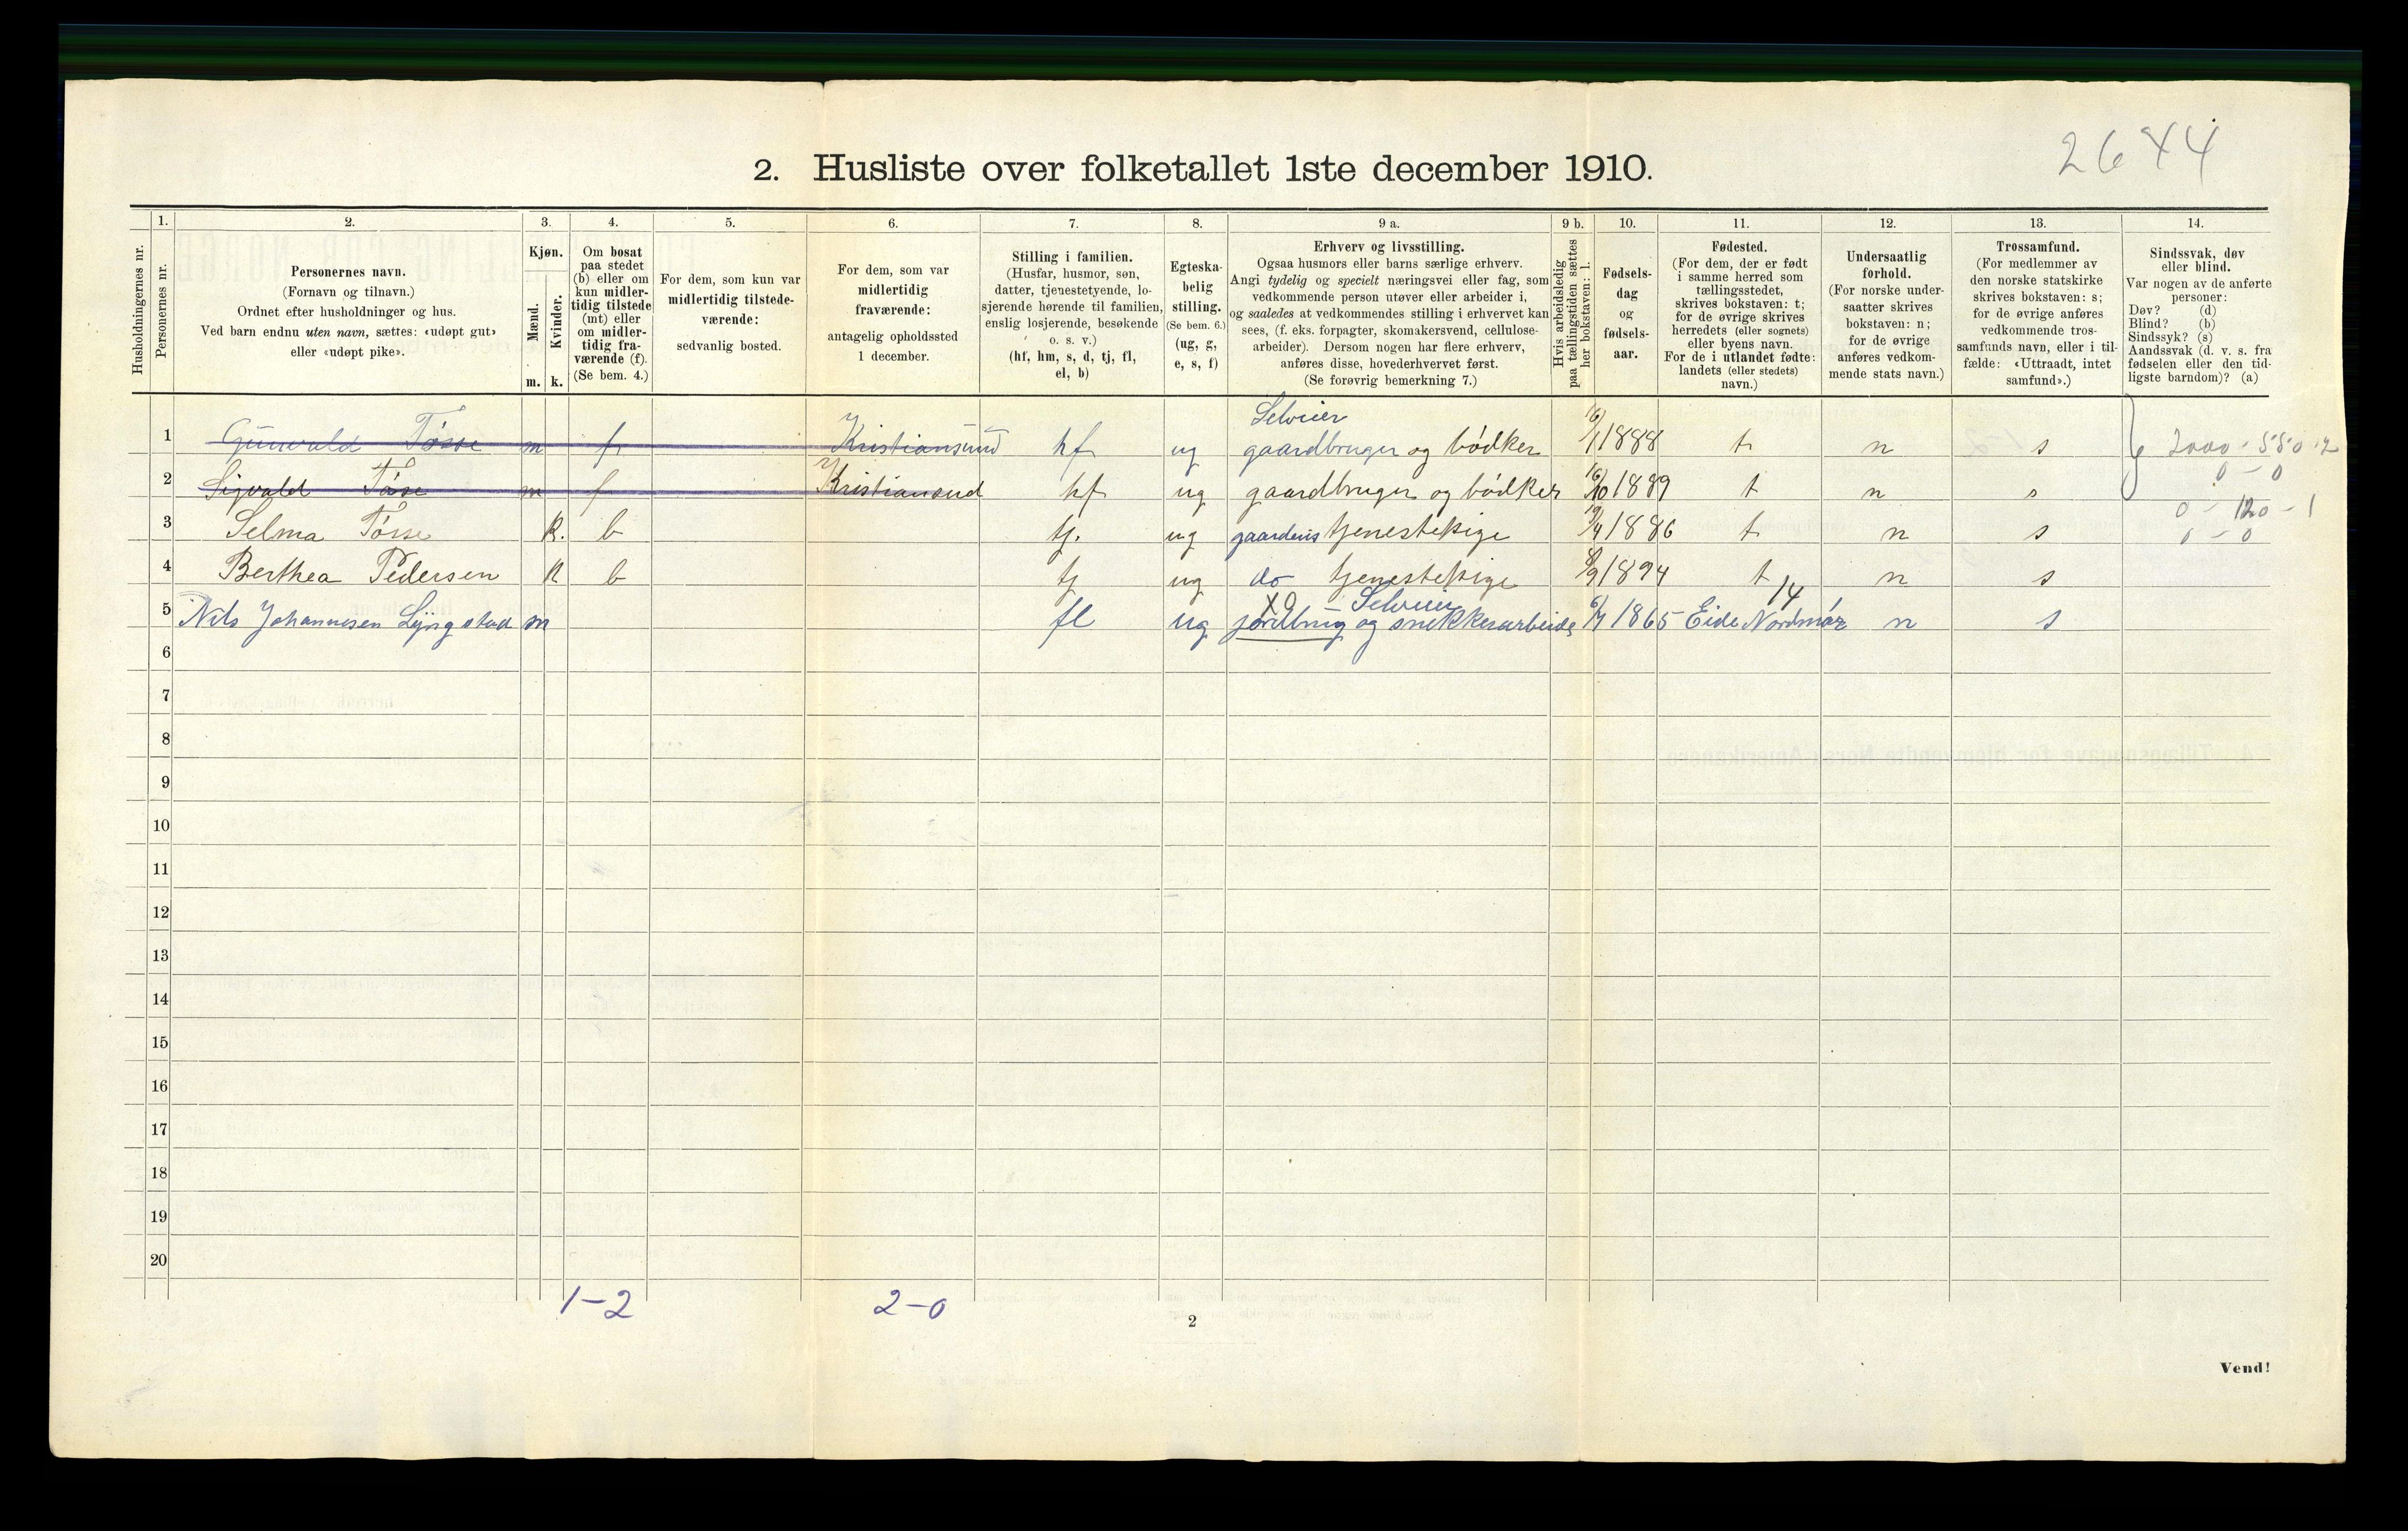 2644
2. Husliste over folketallet 1ste december 1910.
Husholdningernes nr.
1.
Personernes nr.
2.
Personernes navn.
(Fornavn og tilnavn.)
Ordnet efter husholdninger og hus.
Ved barn endnu uten navn, sættes: «udøpt gut»
eller «udøpt pike».
3.
Kjøn.
Mænd.
Kvinder.
m. k.
4.
Om bosat
paa stedet
(b) eller om
kun midler-
tidig tilstede
(mt) eller
om midler-
tidig fra-
værende (f).
(Se bem. 4.)
5.
For dem, som kun var
midlertidig tilstede-
værende:
sedvanlig bosted.
6.
For dem, som var
midlertidig
fraværende:
antagelig opholdssted
1 december.
7.
Stilling i familien.
(Husfar, husmor, søn,
datter, tjenestetyende, lo-
sjerende hørende til familien,
enslig losjerende, besøkende
o. s. v.)
(hf, hm, s, d, tj, fl,
el, b)
8.
Egteska-
belig
stilling.
(Se bem. 6.)
(ug, g,
e, s, f)
9 a.
Erhverv og livsstilling.
Ogsaa husmors eller barns særlige erhverv.
Angi tydelig og specielt næringsvei eller fag, som
vedkommende person utøver eller arbeider i,
og saaledes at vedkommendes stilling i erhvervet kan
sees, (f. eks. forpagter, skomakersvend, cellulose-
arbeider). Dersom nogen har flere erhverv,
anføres disse, hovederhvervet først.
(Se forøvrig bemerkning 7.)
9 b.
Hvis arbeidsledig
paa tællingstiden sættes
her bokstaven: l.
10.
Fødsels-
dag
og
fødsels-
aar.
11.
Fødested.
(For dem, der er født
i samme herred som
tællingsstedet,
skrives bokstaven: t;
for de øvrige skrives
herredets (eller sognets)
eller byens navn.
For de i utlandet fødte:
landets (eller stedets)
navn.)
12.
Undersaatlig
forhold.
(For norske under-
saatter skrives
bokstaven: n;
for de øvrige
anføres vedkom-
mende stats navn.)
13.
Trossamfund.
(For medlemmer av
den norske statskirke
skrives bokstaven: s;
for de øvrige anføres
vedkommende tros-
samfunds navn, eller i til-
fælde: «Uttraadt, intet
samfund».)
14.
Sindssvak, døv
eller blind.
Var nogen av de anførte
personer:
Døv? (d)
Blind? (b)
Sindssyk? (s)
Aandssvak (d. v. s. fra
fødselen eller den tid-
ligste barndom)? (a)
Seleier
1 Gunvald Tøsse m f Kristiansund hf ug gaardbruger og bødker 16/1 1888 t n s 2000 - 550 - 2
0 - 0
2 Sigvald Tøsse m f Kristiansund hf ug gaardbruger og bødker 16/10 1889 t n s
0 - 120 - 1
3 Selma Tøsse k. b tj. ug gaardens tjenestepige 19/4 1886 t n s 0 - 0
4 Berthea Pedersen k b tj ug do tjenestepige 8/9 1894 t n s
X0 Selveier 14
5 Nils Johannesen Lyngstad m fl ug jordbrug og snekkerarbeide 6/7 1865 Eide Nordmør n s
6
7
8
9
10
11
12
13
14
15
16
17
18
19
20
1-2 2-0
2
Vend!